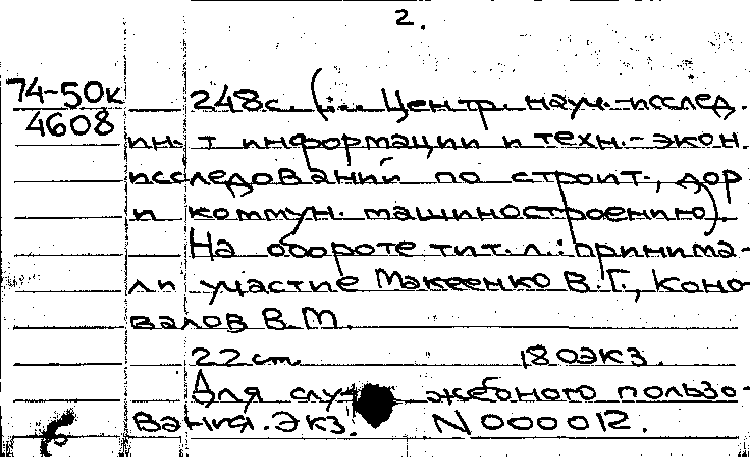 2.
74-50к 248с. (... Центр. науч.-исслед.
4608
ин-т информации и техн.-экон.
исследований по строит., дор
и коммун. машиностроению).
На обороте тит. л.: принима-
ли участие Макеенко В.Г., Коно-
валов В.М.
22 см 180экз.
Для служебного пользо-
вания. Экз. N 000012.